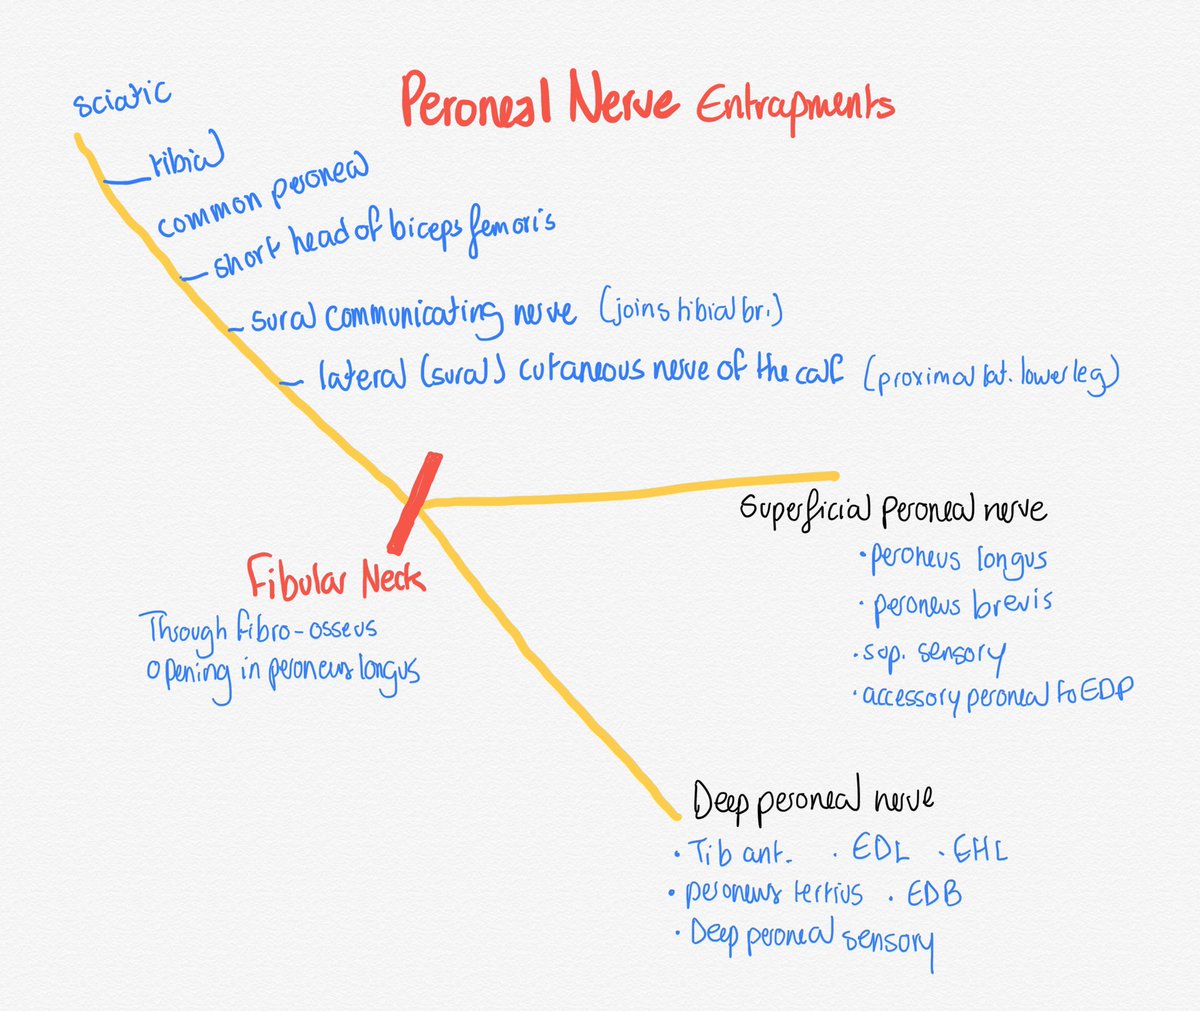 Peroneal Nerve Entrapments
sciatic
tibial
common peroneal
short head of biceps femoris
sural communicating nerve (joins tibial br.)
lateral (sural) cutaneous nerve of the calf (proximal lat. lower leg)
Superficial peroneal nerve
• peroneus longus
• peroneus brevis
• sup. sensory
• accessory peroneal to EDP
Fibular Neck
Through fibro-osseus
opening in peroneus longus
Deep peroneal nerve
• Tib ant. • EDL • EHL
• peroneus tertius • EDB
• Deep peroneal sensory